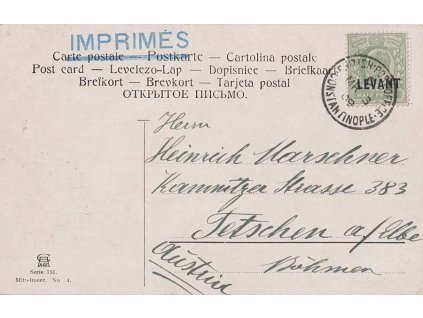 IMPRIMÉS
Carte postale — Postkarte — Cartolina postale
Post card — Levelezo-Lap — Dopisnice — Briefkaart
Brefkort — Brevkort — Tarjeta postal
ОТКРЫТОЕ ПИСЬМО.
LEVANT
BRITISH POST OFFICE
CONSTANTINOPLE
Herrn
Heinrich Marschner
Kamnitzer Strasse 383
Tetschen a/Elbe
Böhmen
Austria
Serie 191.
Mittelmeer. No 4.